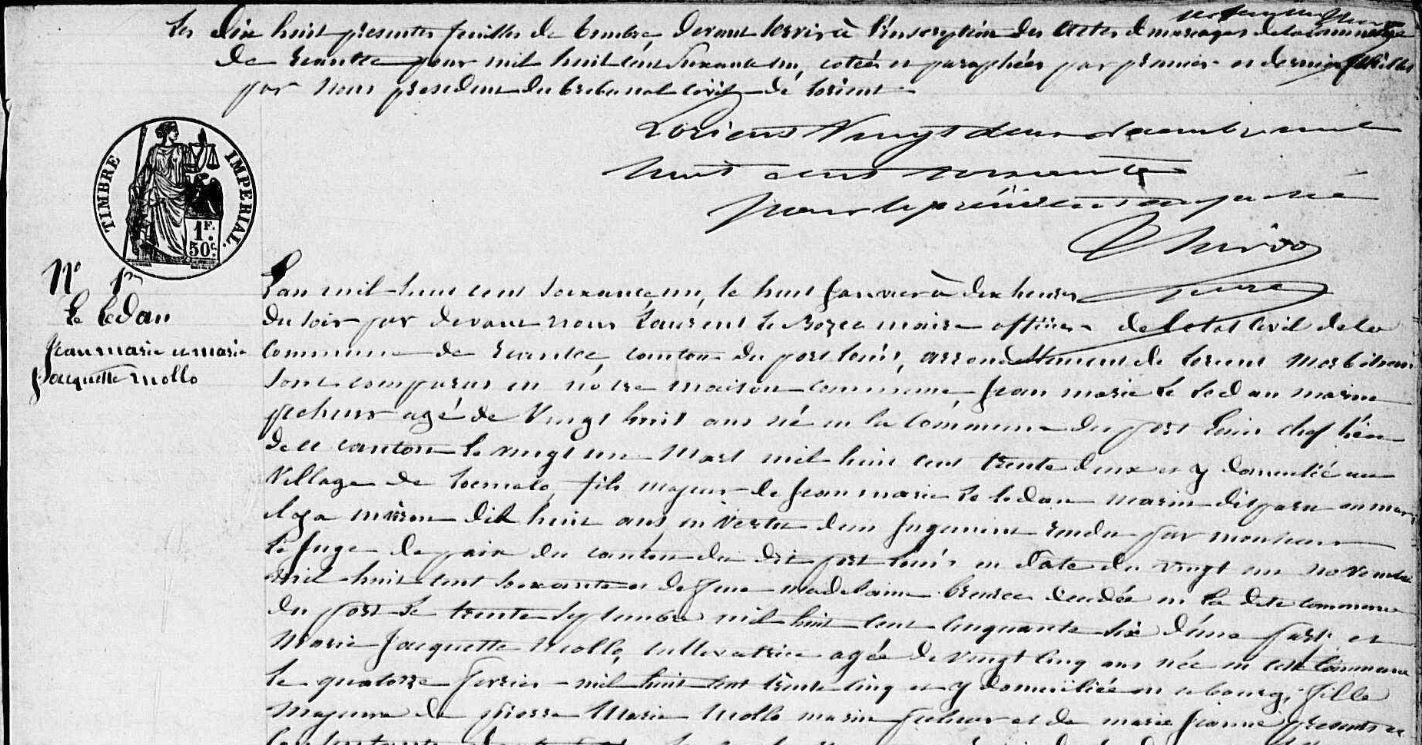 Les dix huit présentes feuilles de timbre devant servir à l'inscription des actes de mariages de la commune
de Riantec pour mil huit cent soixante un, cotées et paraphées par premier et dernier feuillet
par nous président du tribunal civil de Lorient
Lorient Vingt deux décembre mil
huit cent soixante
pour le président empêché
TIMBRE IMPERIAL.
1F.
50c.
N° 1er
Le Ledan
Jean marie et marie
Jacquette Mollo
L'an mil huit cent soixante un, le huit janvier à dix heures
du soir par devant nous Laurent Le Rozec maire officier de l'état civil de la
commune de Riantec canton du port louis, arrondissement de Lorient Morbihan
sont comparus en nôtre maison commune Jean marie Le Ledan marin
pecheur agé de Vingt huit ans né en la commune du port louis chef lieu
de ce canton le vingt un Mars mil huit cent trente deux et y domicilié au
Village de Locmalo, fils majeur de Jean marie Le Ledan marin disparu en mer
il y a environ dix huit ans en vertu d'un jugement rendu par monsieur
le juge de paix du canton du dit port louis en date du vingt un novembre
mil huit cent soixante et de feue madelaine decédée en la dite commune
du port le trente septembre mil huit cent cinquante six d'une part et
Marie Jacquette Mollo, cultivatrice agée de vingt cinq ans née en cette commune
le quatorze fevrier mil huit cent trente cinq et y domiciliée en ce bourg, fille
majeure de pierre Marie Mollo marin pecheur et de marie jeanne presents et